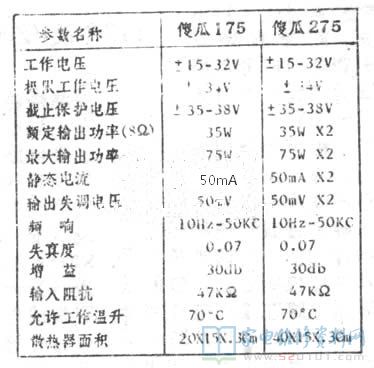 参数名称 傻瓜175 傻瓜275
工作电压 ±15-32V ±15-32V
极限工作电压 ±34V ±34V
截止保护电压 ±35-38V ±35-38V
额定输出功率(8Ω) 35W 35W X2
最大输出功率 75W 75W X2
静态电流 50mA 50mA X2
输出失调电压 50mV 50mV X2
频 响 10Hz-50KC 10Hz-50KC
失真度 0.07 0.07
增 益 30db 30db
输入阻抗 47KΩ 47KΩ
允许工作温升 70°C 70°C
散热器面积 20X15X.3Cm 40X15X.3Cm
家电维修资料网
www.520101.com